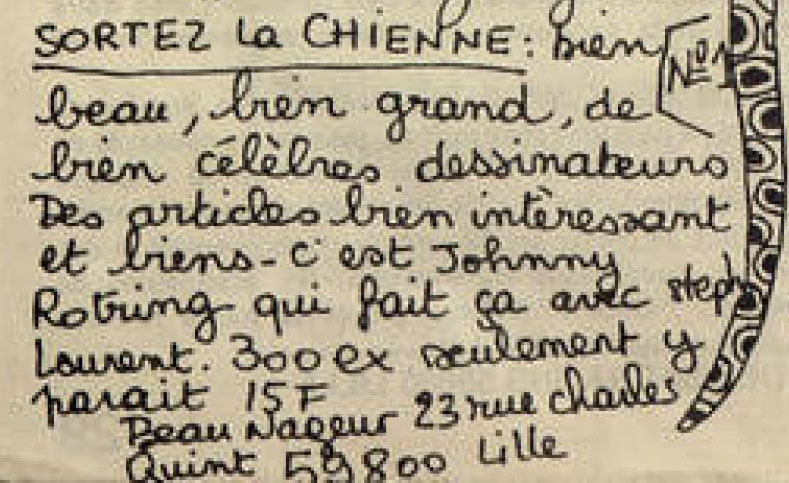 SORTEZ La CHIENNE : bien
N°1
beau, bien grand, de
bien célèbres dessinateurs
Des articles bien intèressant
et biens - C'est Johnny
Rotring qui fait ça avec steph
Laurent. 300 ex seulement y
parait 15F
Beau Nageur 23 rue charles
Quint 59800 Lille